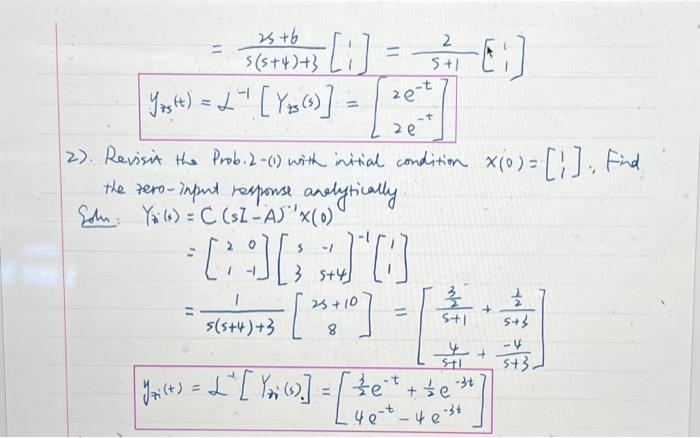 = \frac{2s+6}{s(s+4)+3} \begin{bmatrix} 1 \\ 1 \end{bmatrix} = \frac{2}{s+1} \begin{bmatrix} 1 \\ 1 \end{bmatrix}
y_{zs}(t) = \mathcal{L}^{-1} [Y_{zs}(s)] = \begin{bmatrix} 2e^{-t} \\ 2e^{-t} \end{bmatrix}
2). Revisit the Prob.2-(1) with initial condition x(0) = \begin{bmatrix} 1 \\ 1 \end{bmatrix}. Find
the zero-input response analytically.
Soln: Y_{zi}(s) = C(sI-A)^{-1} x(0)
= \begin{bmatrix} 2 & 0 \\ 1 & -1 \end{bmatrix} \begin{bmatrix} s & -1 \\ 3 & s+4 \end{bmatrix}^{-1} \begin{bmatrix} 1 \\ 1 \end{bmatrix}
= \frac{1}{s(s+4)+3} \begin{bmatrix} 2s+10 \\ 8 \end{bmatrix} = \begin{bmatrix} \frac{\frac{3}{2}}{s+1} + \frac{\frac{1}{2}}{s+3} \\ \frac{4}{s+1} + \frac{-4}{s+3} \end{bmatrix}
y_{zi}(t) = \mathcal{L}^{-1} [Y_{zi}(s).] = \begin{bmatrix} \frac{3}{2}e^{-t} + \frac{1}{2}e^{-3t} \\ 4e^{-t} - 4e^{-3t} \end{bmatrix}